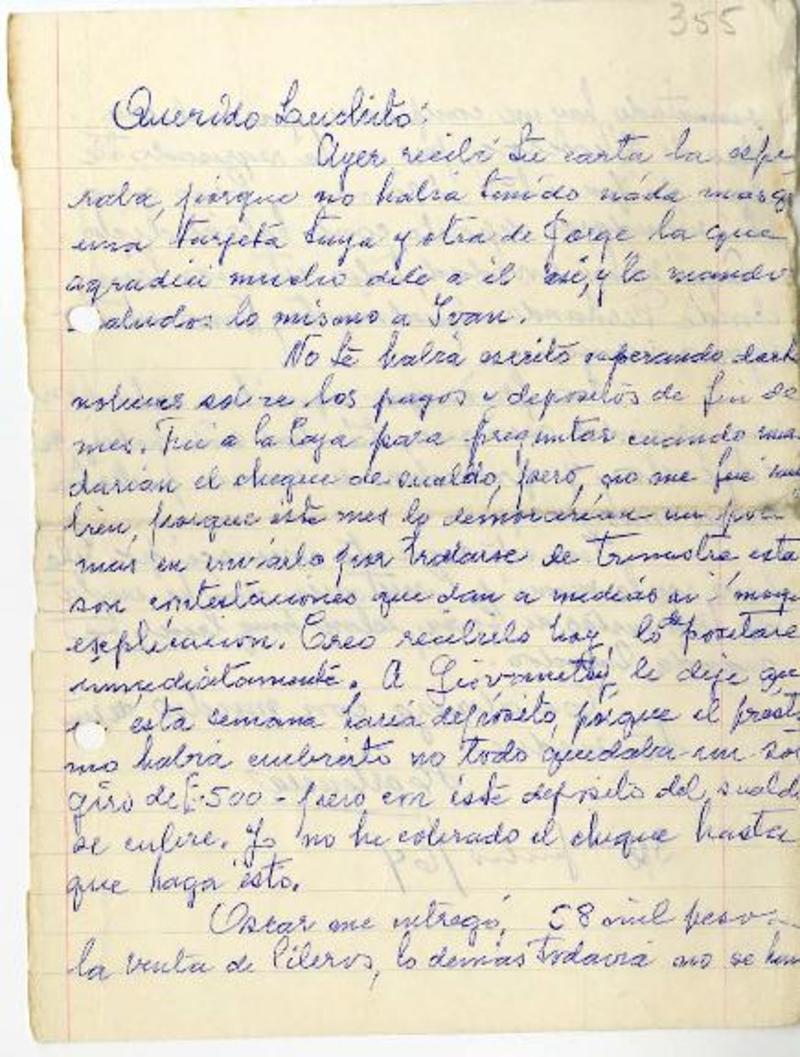 355
Querido Lauchito:
Ayer recibí tu carta la espe
raba, porque no había tenido nada mas q
una tarjeta tuya y otra de Jorge la que
agradici mucho dile a él así, y le mando
aludos lo mismo a Ivan.
No te había escrito esperando darte
noticias sobre los pagos y depositos de fin de
mes. Fui a la Caja para preguntar cuando man
darian el cheque de sueldo, pero, no me fue mui
bien, porque éste mes lo demorarian un poco
mas en enviarlo por tratarse de trimestre esta
son contestaciones que dan a medias ni
esplicacion. Creo recibirlo hoy, lo depositare
inmediatamente. A Giovanetty, le dije que
esta semana haria depósito, porque el prest
mo había cubierto no todo quedaba un so
giro de E-500- pero con éste deposito del sueld
se cubre. Yo no he cobrado el cheque hasta
que haga ésto.
Oscar me entregó, 58 mil pesos
la venta de Pileros, lo demás todavia no se han